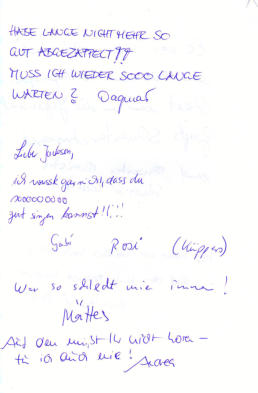 HABE LANGE NICHT MEHR SO
GUT ABGEZAPPELT!!
MUSS ICH WIEDER SOOO LANGE
WARTEN? Dagmar
Liebe Jackson,
ich wusste gar nicht, dass du
sooooooooo
gut singen kannst!!!!
Gabi Rosi (Küppers)
War so schlecht wie immer!
Mattes
Auf den müsst Ihr nicht hören –
tu ich auch nie! Andrea